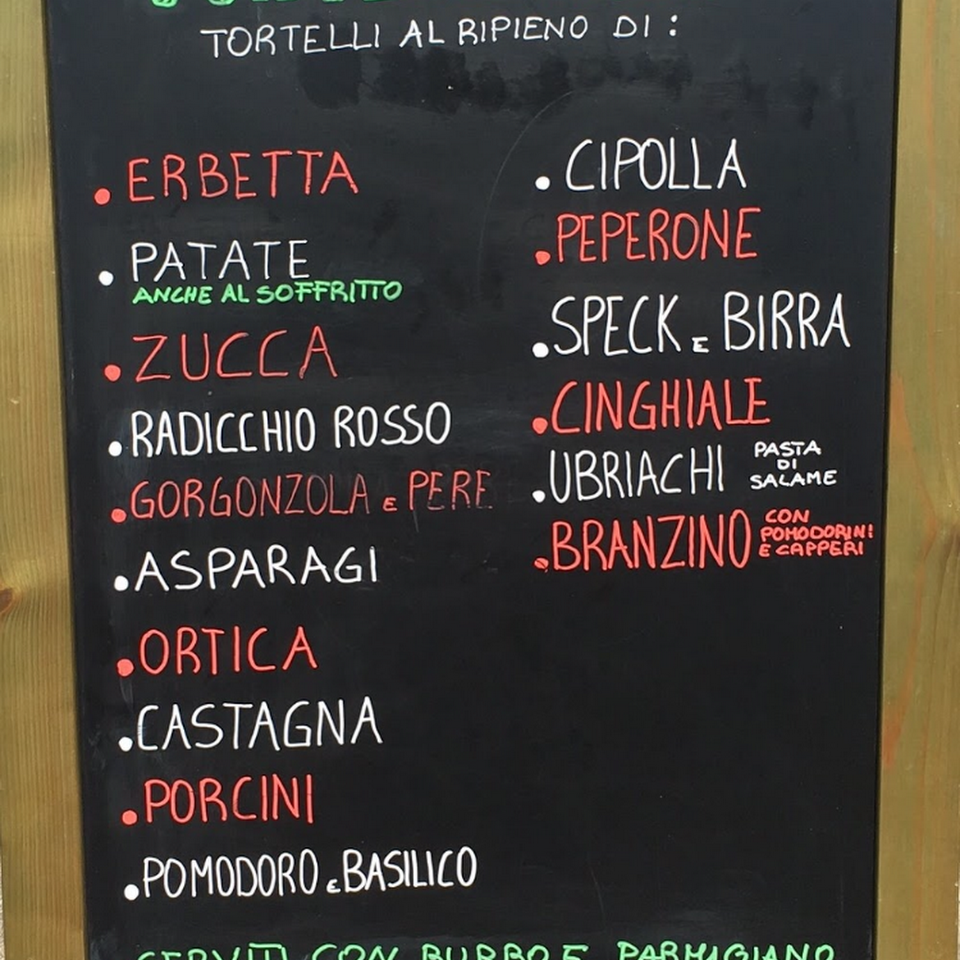 TORTELLI AL RIPIENO DI :
. ERBETTA
. PATATE
ANCHE AL SOFFRITTO
. ZUCCA
. RADICCHIO ROSSO
. GORGONZOLA E PERE
. ASPARAGI
. ORTICA
. CASTAGNA
. PORCINI
. POMODORO E BASILICO
. CIPOLLA
. PEPERONE
. SPECK E BIRRA
. CINGHIALE
. UBRIACHI PASTA
DI
SALAME
. BRANZINO CON
POMODORINI
E CAPPERI
SERVITI CON BURRO E PARMIGIANO